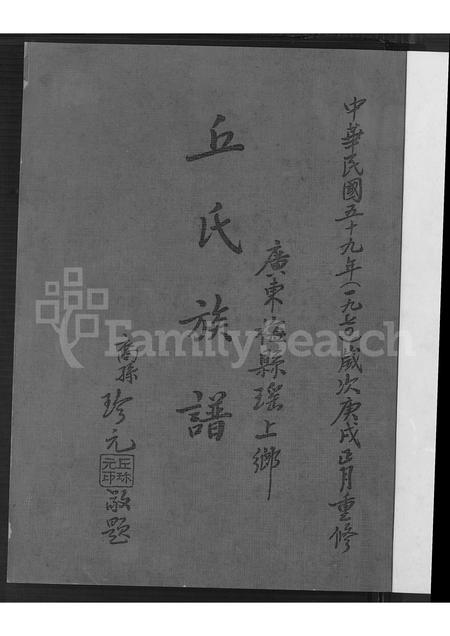 中華民國五十九年(一九七〇)歲次庚戌正月重修
廣東梅縣瑤上鄉
丘氏族譜
裔孫珍元
丘珍元印
敬題
FamilySearch